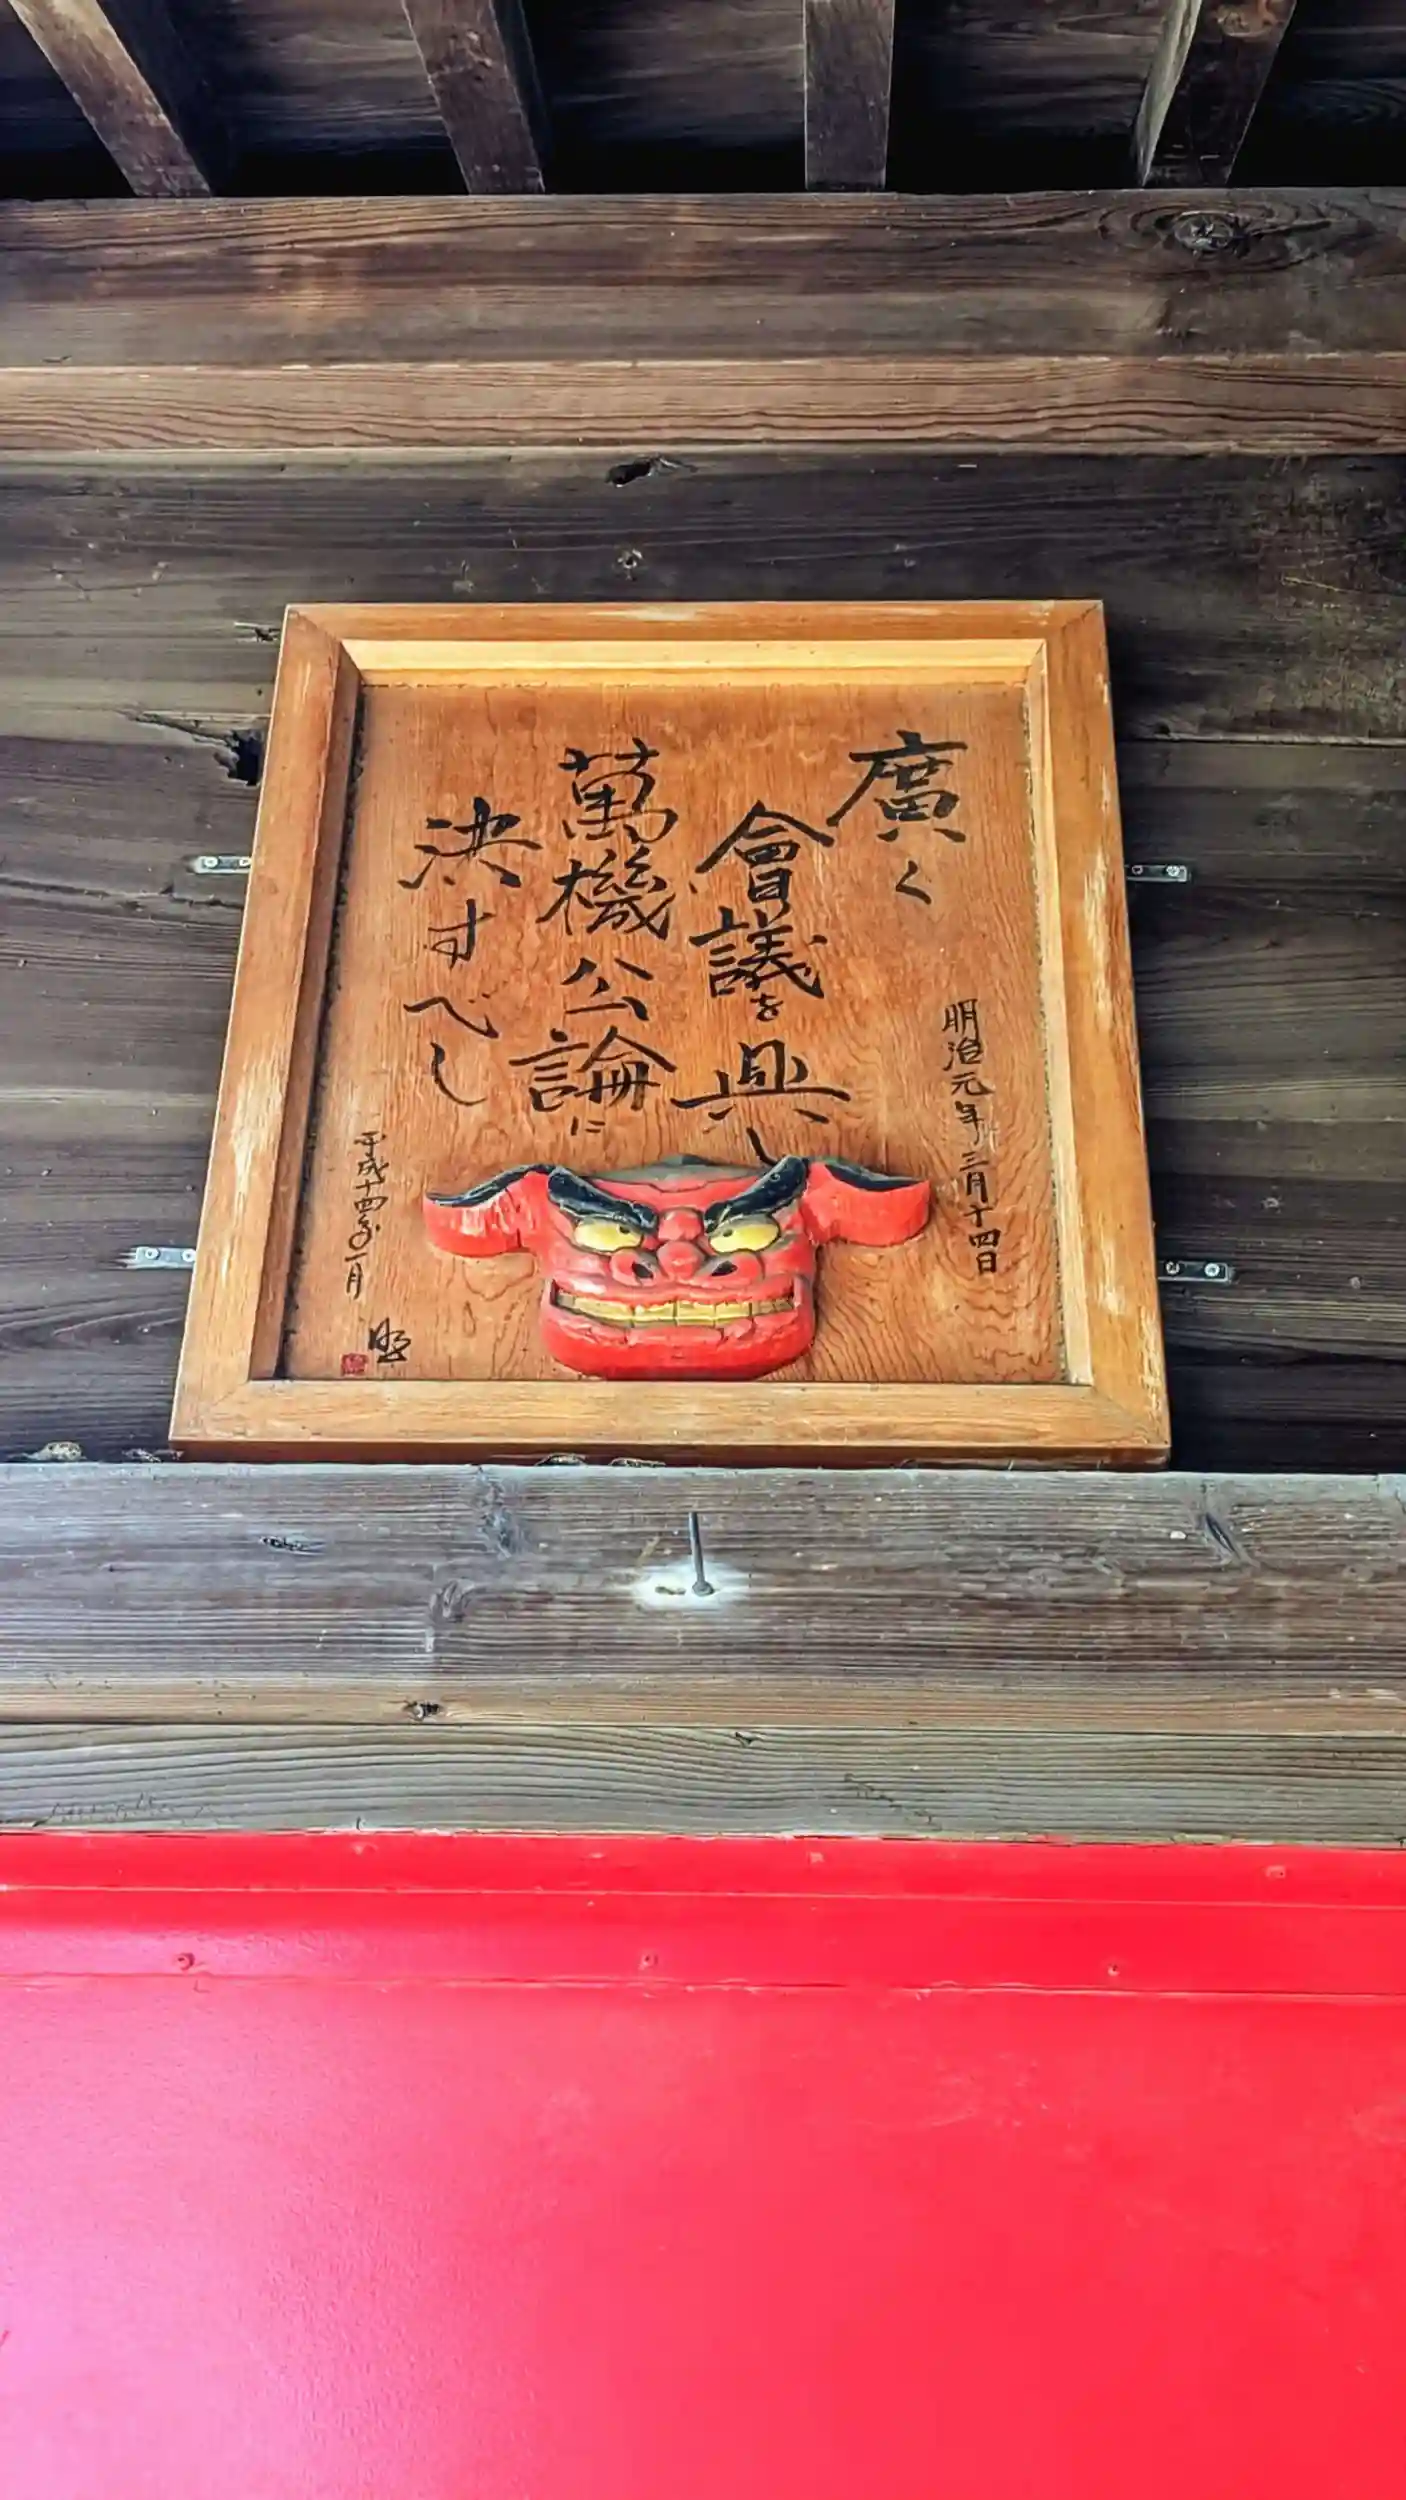 廣く
明治元年三月十四日
會議を興し
萬機公論に
決すべし
平成十四年一月